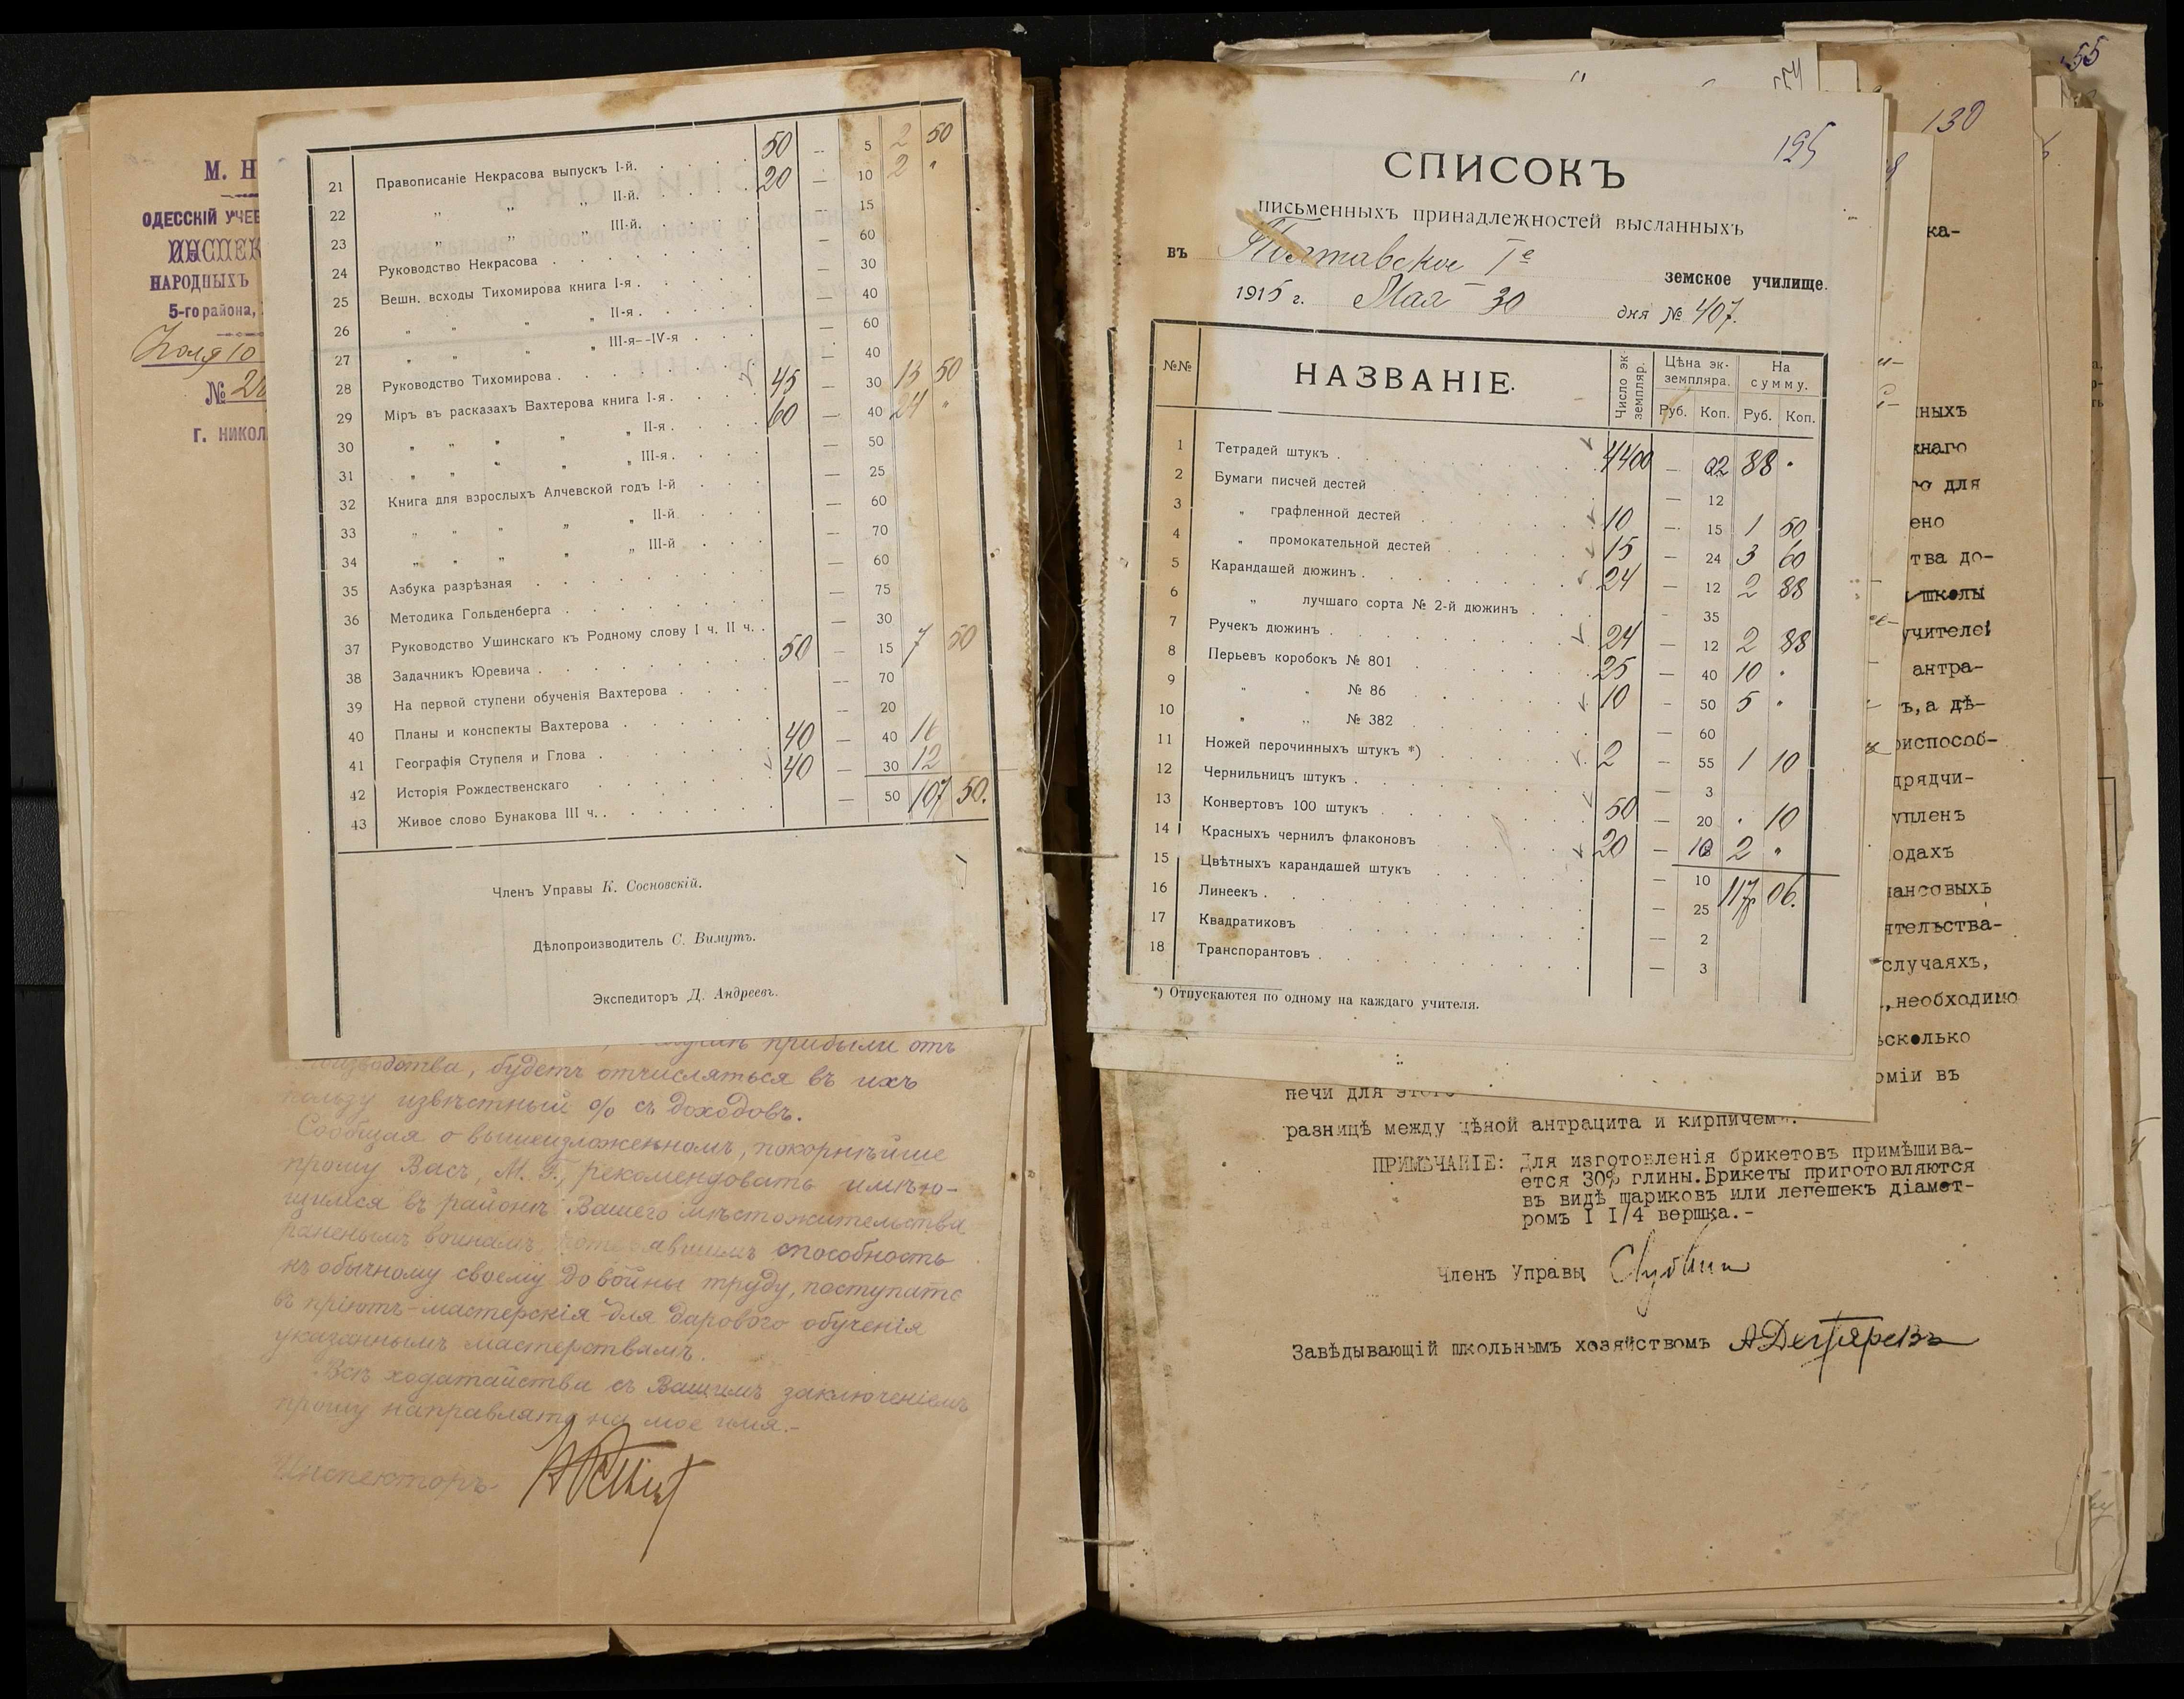 М. Н
ОДЕССКІЙ УЧЕБ
ИНСПЕК
НАРОДНЫХЪ
5-го района,
Іюля 10
№ 26
г. НИКОЛ
50 — 5 2 50
21 Правописаніе Некрасова выпускъ I-й. 20 — 10 2 "
22 " " " II-й. — 15
23 " " " III-й. — 60
24 Руководство Некрасова — 30
25 Вешн. всходы Тихомирова книга I-я — 40
26 " " " " II-я — 60
27 " " " " III-я--IV-я — 40
28 Руководство Тихомирова 45 — 30 13 50
29 Міръ въ расказахъ Вахтерова книга I-я 60 — 40 24 "
30 " " " " " II-я — 50
31 " " " " " III-я — 25
32 Книга для взрослыхъ Алчевской годъ I-й — 60
33 " " " " " II-й — 70
34 " " " " " III-й — 60
35 Азбука разрѣзная — 75
36 Методика Гольденберга — 30
37 Руководство Ушинскаго къ Родному слову I ч. II ч. 50 — 15 7 50
38 Задачникъ Юревича — 70
39 На первой ступени обученія Вахтерова — 20
40 Планы и конспекты Вахтерова 40 — 40 16
41 Географія Ступеля и Глова 40 — 30 12
42 Исторія Рождественскаго — 50 107 50.
43 Живое слово Бунакова III ч.
Членъ Управы К. Сосновскій.
Дѣлопроизводитель С. Вимутъ.
Экспедиторъ Д. Андреевъ.
прибыли отъ
производства, будетъ отчисляться въ ихъ
пользу извѣстный % съ доходовъ.
Сообщая о вышеизложенномъ, покорнѣйше
прошу Васъ, М. Г., рекомендовать имѣю-
щимся въ районѣ Вашего мѣстожительства
раненымъ воинамъ, потерявшимъ способность
къ обычному своему до войны труду, поступать
въ пріютъ-мастерскія для дарового обученія
указаннымъ мастерствамъ.
Всѣ ходатайства съ Вашимъ заключеніемъ
прошу направлять на мое имя.-
Инспекторъ
55
130
195
СПИСОКЪ
письменныхъ принадлежностей высланныхъ
въ Полтавское Iе земское училище.
1915 г. Мая 30 дня № 407.
№№ НАЗВАНІЕ. Число экземпляр. Цѣна экземпляра. На сумму.
Руб. Коп. Руб. Коп.
1 Тетрадей штукъ 4400 — 02 88 "
2 Бумаги писчей дестей — 12
3 " графленной дестей 10 — 15 1 50
4 " промокательной дестей 15 — 24 3 60
5 Карандашей дюжинъ 24 — 12 2 88
6 " лучшаго сорта № 2-й дюжинъ — 35
7 Ручекъ дюжинъ 24 — 12 2 88
8 Перьевъ коробокъ № 801 25 — 40 10 "
9 " " № 86 10 — 50 5 "
10 " " № 382 — 60
11 Ножей перочинныхъ штукъ *) 2 — 55 1 10
12 Чернильницъ штукъ — 3
13 Конвертовъ 100 штукъ 50 — 20 " 10
14 Красныхъ чернилъ флаконовъ 20 — 10 2 "
15 Цвѣтныхъ карандашей штукъ — 10 117р 06.
16 Линеекъ — 25
17 Квадратиковъ — 2
18 Транспорантовъ — 3
*) Отпускаются по одному на каждаго учителя.
ка-
ныхъ
жнаго
го для
ено
тва до-
школы
учителей
антра-
ъ,а дѣ-
риспособ-
дрядчи-
упленъ
одахъ
нансовыхъ
ительства-
случаяхъ,
,необходимо
ѣсколько
оміи въ
печи для этого
разницѣ между цѣной антрацита и кирпичемъ.
ПРИМѢЧАНІЕ: Для изготовленія брикетовъ примѣшива-
ется 30% глины.Брикеты приготовляются
въ видѣ шариковъ или лепешекъ діамет-
ромъ I I/4 вершка.-
Членъ Управы
Завѣдывающій школьнымъ хозяйствомъ А Дегтяревъ